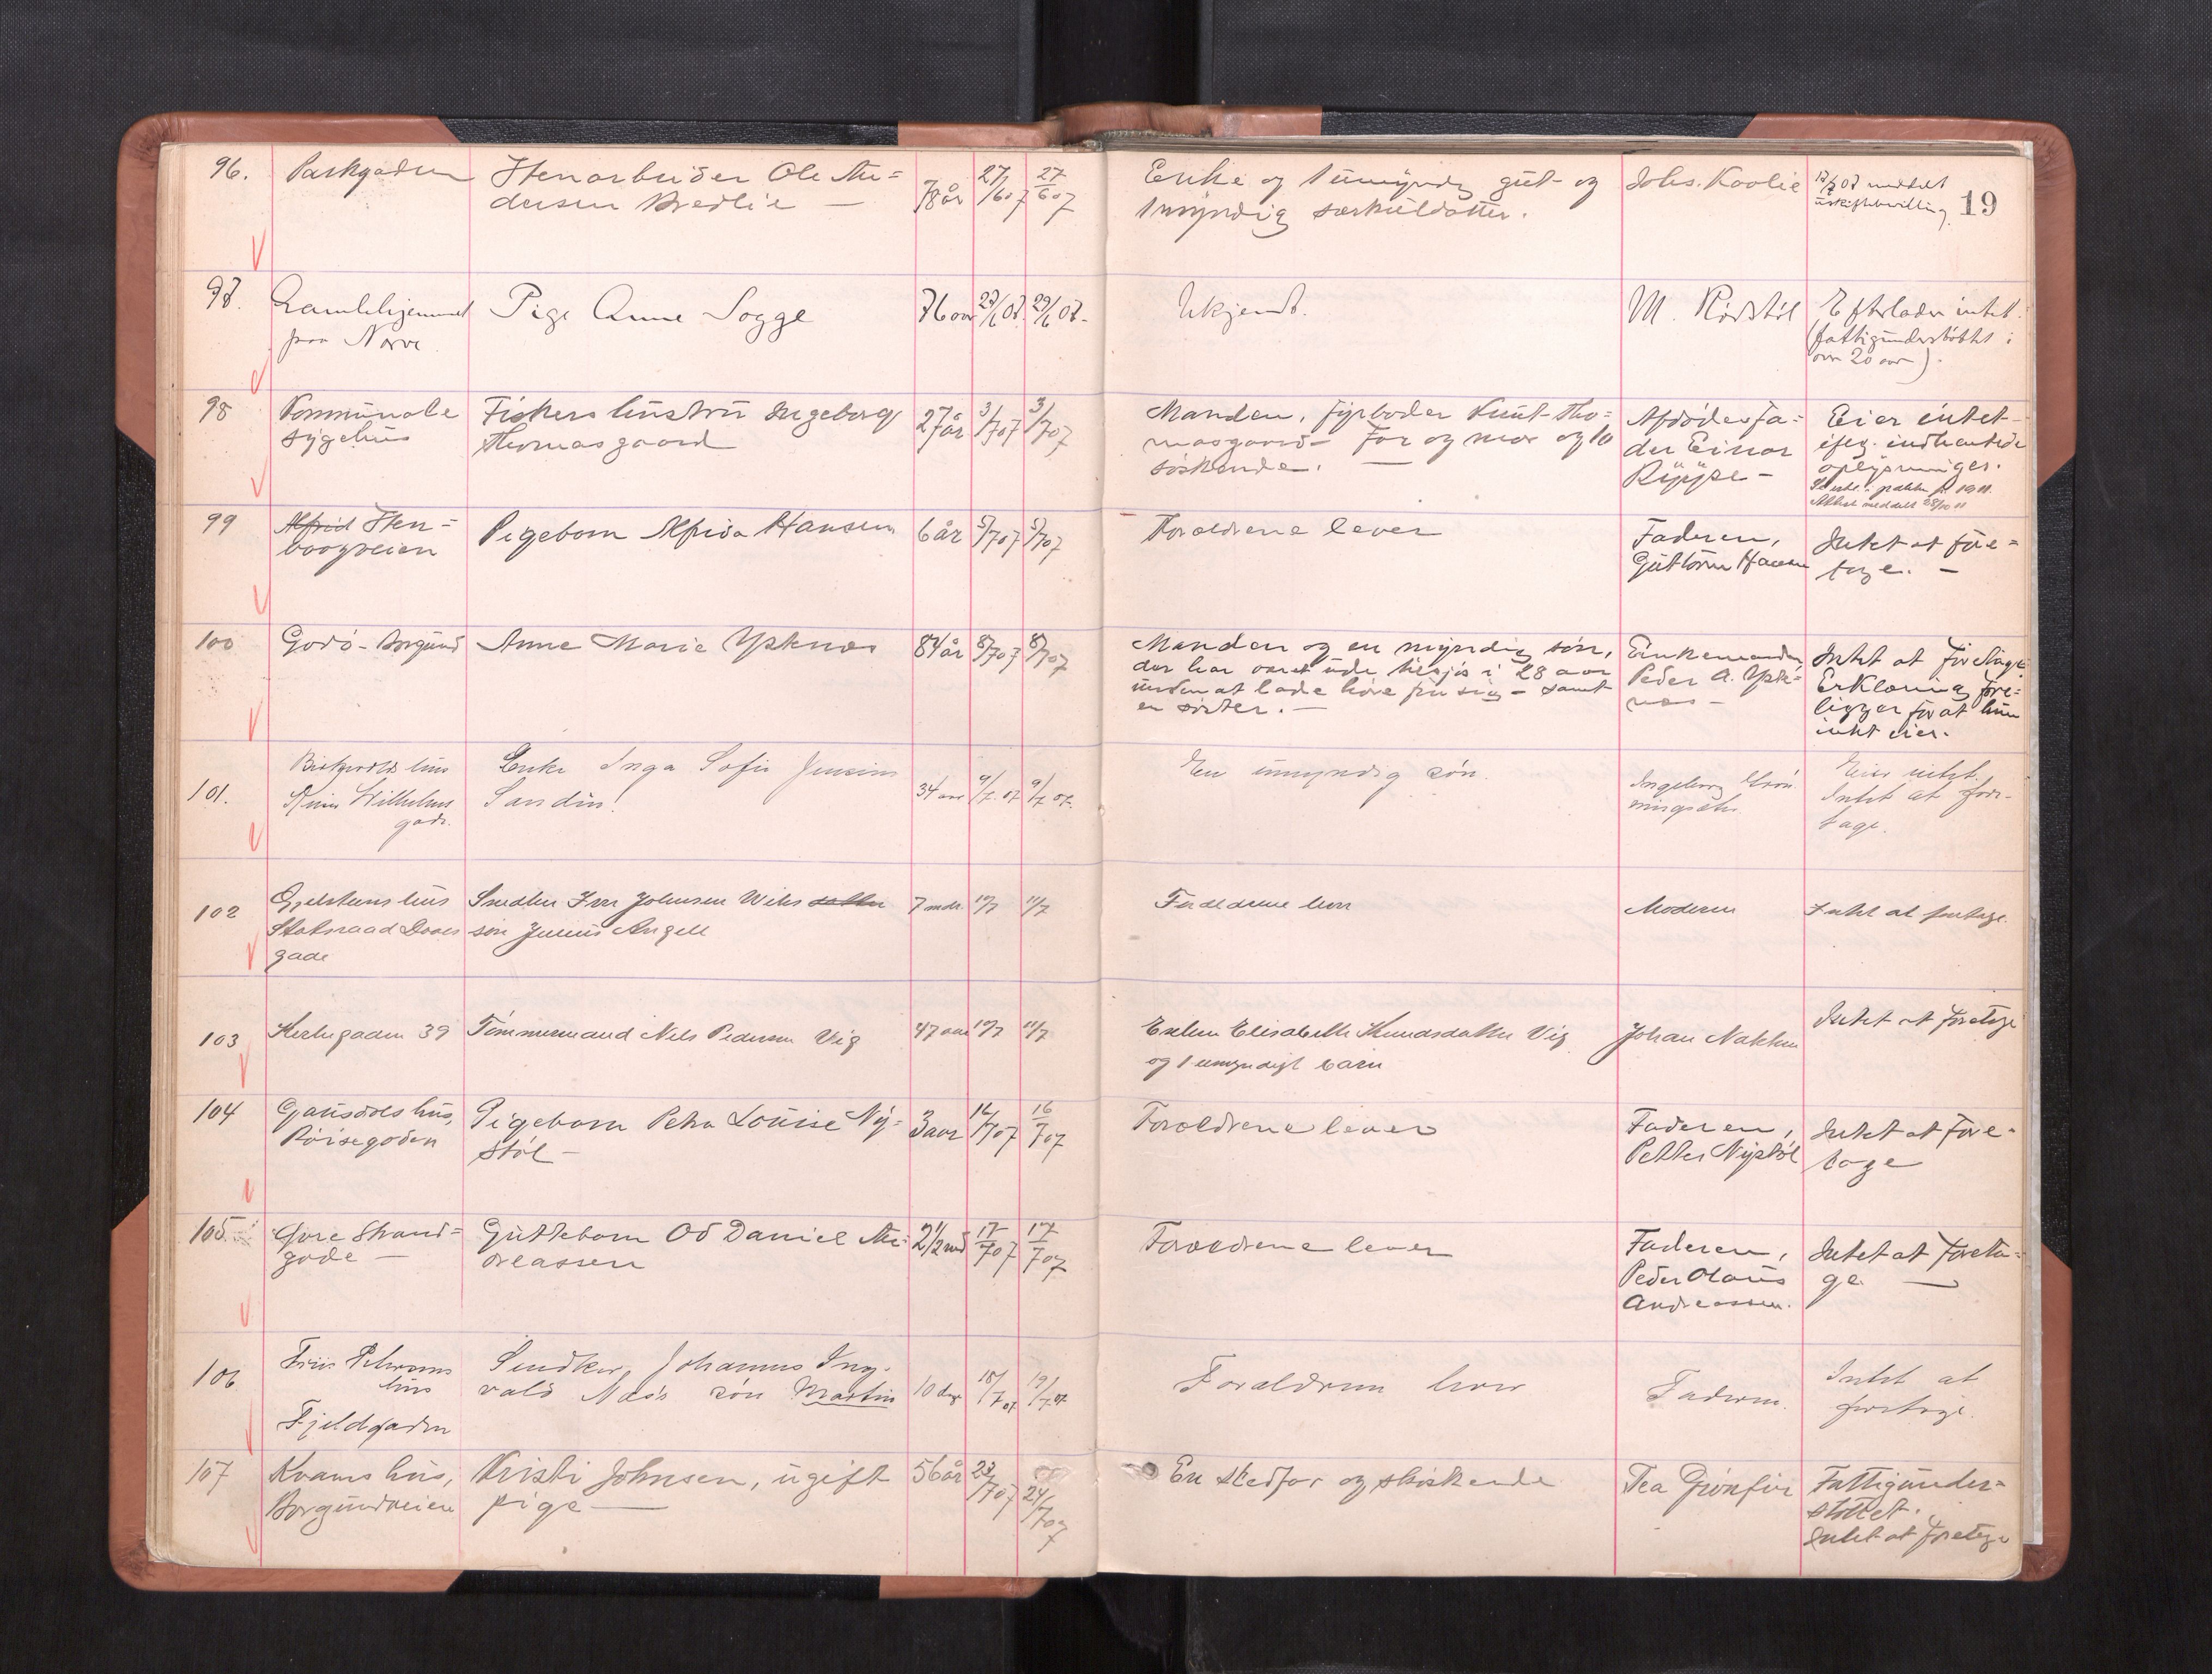 96. Parkgaden Stenarbeider Ole An=
dersen Bredlie — 78 år 27/6 07 27/6 07
Enke og 1 umyndig gut og
1 myndig særkuldatter.
Johs. Roolie
meddelt
uskiftebevilling
19
97. Gamlehjemmet
paa Nørve
Pige Anne Sogge 76 aar 29/6 07. 29/6 07.
Ukjendt.
M. Rørstøl
Efterlader intet.
(fattigunderstøttet i
over 20 aar).
98 Kommunale
sygehus
Fiskers hustru Ingeborg
Thomasgaard
27 år 3/7 07 3/7 07
Manden, fyrbøder Knut Tho=
masgaard — Far og mor og 10
søskende. —
Afdødes fa=
der Einar
Rypse —
Eier intet
ifølg. indhentede
oplysninger.
99 Alfrid Sten=
vaagveien
Pigebarn Alfrida Hansen 6 år 5/7 07 5/7 07
Forældrene lever
Faderen,
Guttorm Hansen
Intet at fore=
tage. —
100 Godø - Borgund Anne Marie Ytsenæs 84 år 8/7 07 8/7 07
Manden og en myndig søn,
der har været ude tilsjøs i 28 aar
uden at lade høre fra sig — samt
en søster. —
Enkemanden
Peder A.
Intet at foretage
Erklæring fore=
ligger for at hun
intet eier.
101. hus
Keiser Wilhelms
gade.
Enke Inga Sofie Jensine
Sandin!
34 aar 9/7 07 9/7 07.
En umyndig søn.
Ingeborg
Eier intet.
Intet at fore-
tage.
102 Gjelstens hus
Statsraad Daaes
gade
Snedker Iver Johnsen Wiks datter
søn Julius Angell
7 mdr. 10/7 11/7
Forældrene lever
Moderen
Intet at foretage.
103 Kirkegaden 39 Tømmermand Nils Pedersen Vig 47 aar 10/7 11/7
Enken Elisabeth Knudsdatter Vig
og 1 umyndigt barn
Johan Nakken
Intet at foretage
104 Gausdals hus,
Røisegaden
Pigebarn Petra Louise Ny=
støl —
3 aar 16/7 07 16/7 07
Forældrene lever
Faderen,
Petter Nystøl
Intet at fore=
tage
105. Øvre Strand=
gade —
Guttebarn Od Daniel An=
dreassen
2 1/2 md 17/7 07 17/7 07
Forældrene lever
Faderen,
Peder Olaus
Andreassen.
Intet at foreta=
ge —
106 Friis Petersens
hus
Fjeldgaden
Snedker Johannes Ing-
vald Næs's søn Martin
10 dage 18/7 07 19/7 07
Forældrene lever
Faderen.
Intet at
foretage.
107 Kvams hus,
Borgundveien
Kristi Johnsen, ugift
pige —
56 år 23/7 07 24/7 07
En stedfar og søskende
Tea
Fattigunder=
støttet.
Intet at foretage